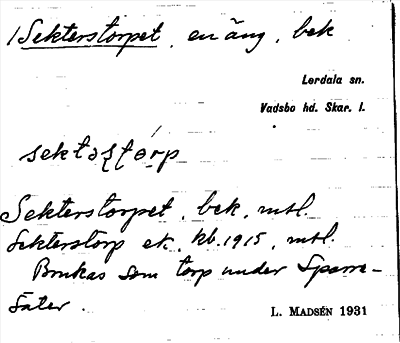 1 Sekterstorpet, en äng, bek
Lerdala sn.
Vadsbo hd. Skar. l.
sektəʂtɷrp
Sekterstorpet, bek, mtl.
Sekterstorp ek. kb. 1915, mtl.
Brukas som torp under Sparre-
säter.
L. MADSÉN 1931